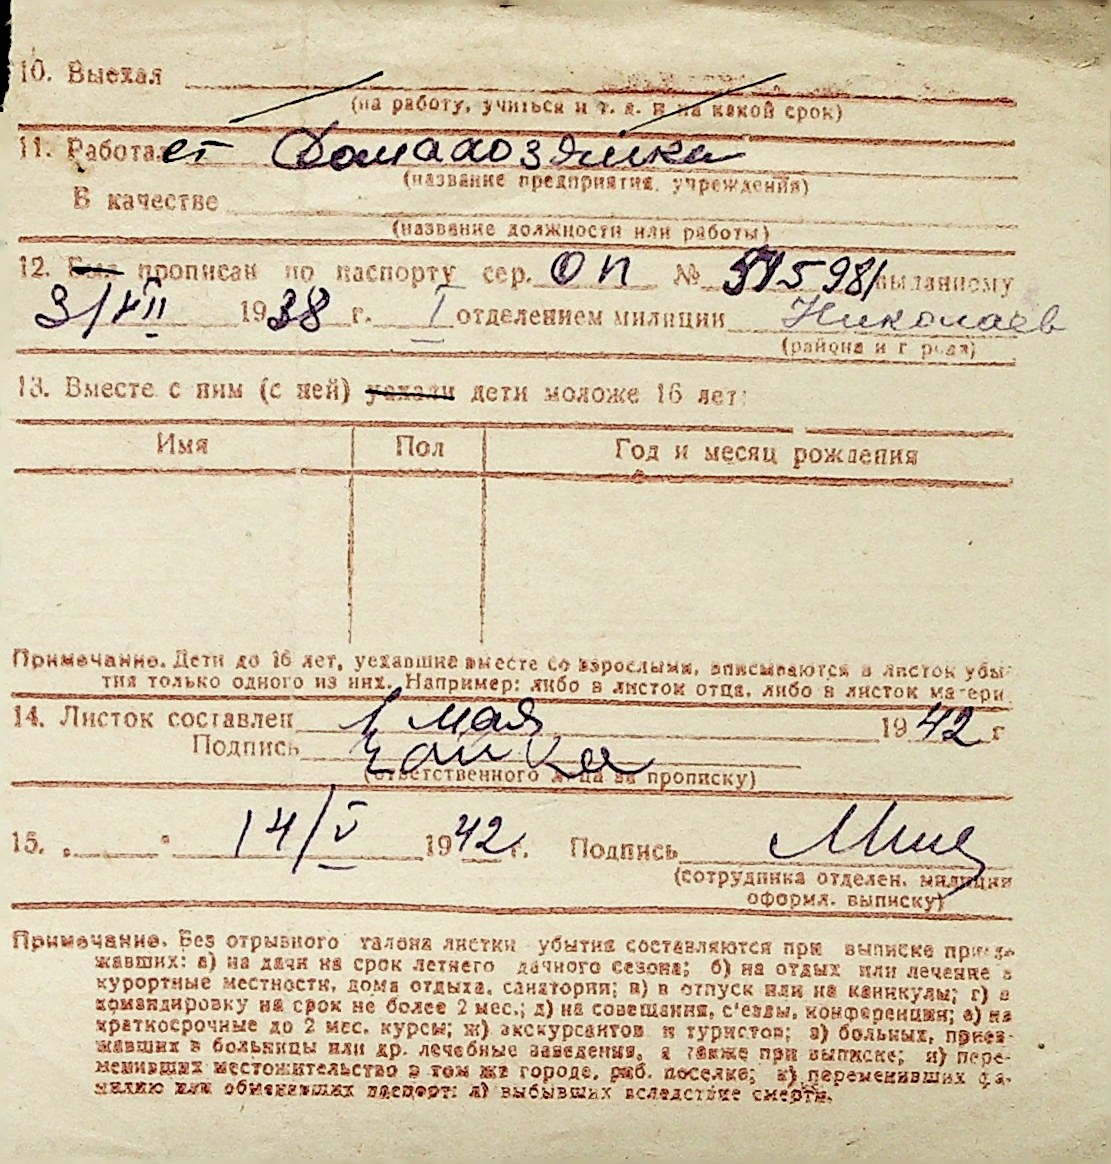 10. Выехал
(на работу, учиться и т. д. и на какой срок)
11. Работает Домахозяйка
(название предприятия, учреждения)
В качестве
(название должности или работы)
12. Был прописан по паспорту сер. ОП № 515981 выданному
3/VIII 1938 г. I отделением милиции Николаев
(района и города)
13. Вместе с ним (с ней) уехали дети моложе 16 лет:
Имя Пол Год и месяц рождения
Примечание. Дети до 16 лет, уехавшие вместе со взрослыми, вписываются в листок убы-
тия только одного из них. Например: либо в листок отца, либо в листок матери
14. Листок составлен 1 мая 1942 г
Подпись
(ответственного лица за прописку)
15. „ " 14/V 1942 г. Подпись
(сотрудника отделен. милиции
оформл. выписку)
Примечание. Без отрывного талона листки убытия составляются при выписке приез-
жавших: а) на дачи на срок летнего дачного сезона; б) на отдых или лечение в
курортные местности, дома отдыха, санатории; в) в отпуск или на каникулы; г) в
командировку на срок не более 2 мес.; д) на совещания, с'езды, конференции; е) на
краткосрочные до 2 мес. курсы; ж) экскурсантов и туристов; з) больных, приез-
жавших в больницы или др. лечебные заведения, а также при выписке; и) пере-
менивших местожительство в том же городе, раб. поселке; к) переменивших фа-
милию или обменивших паспорт; л) выбывших вследствие смерти.